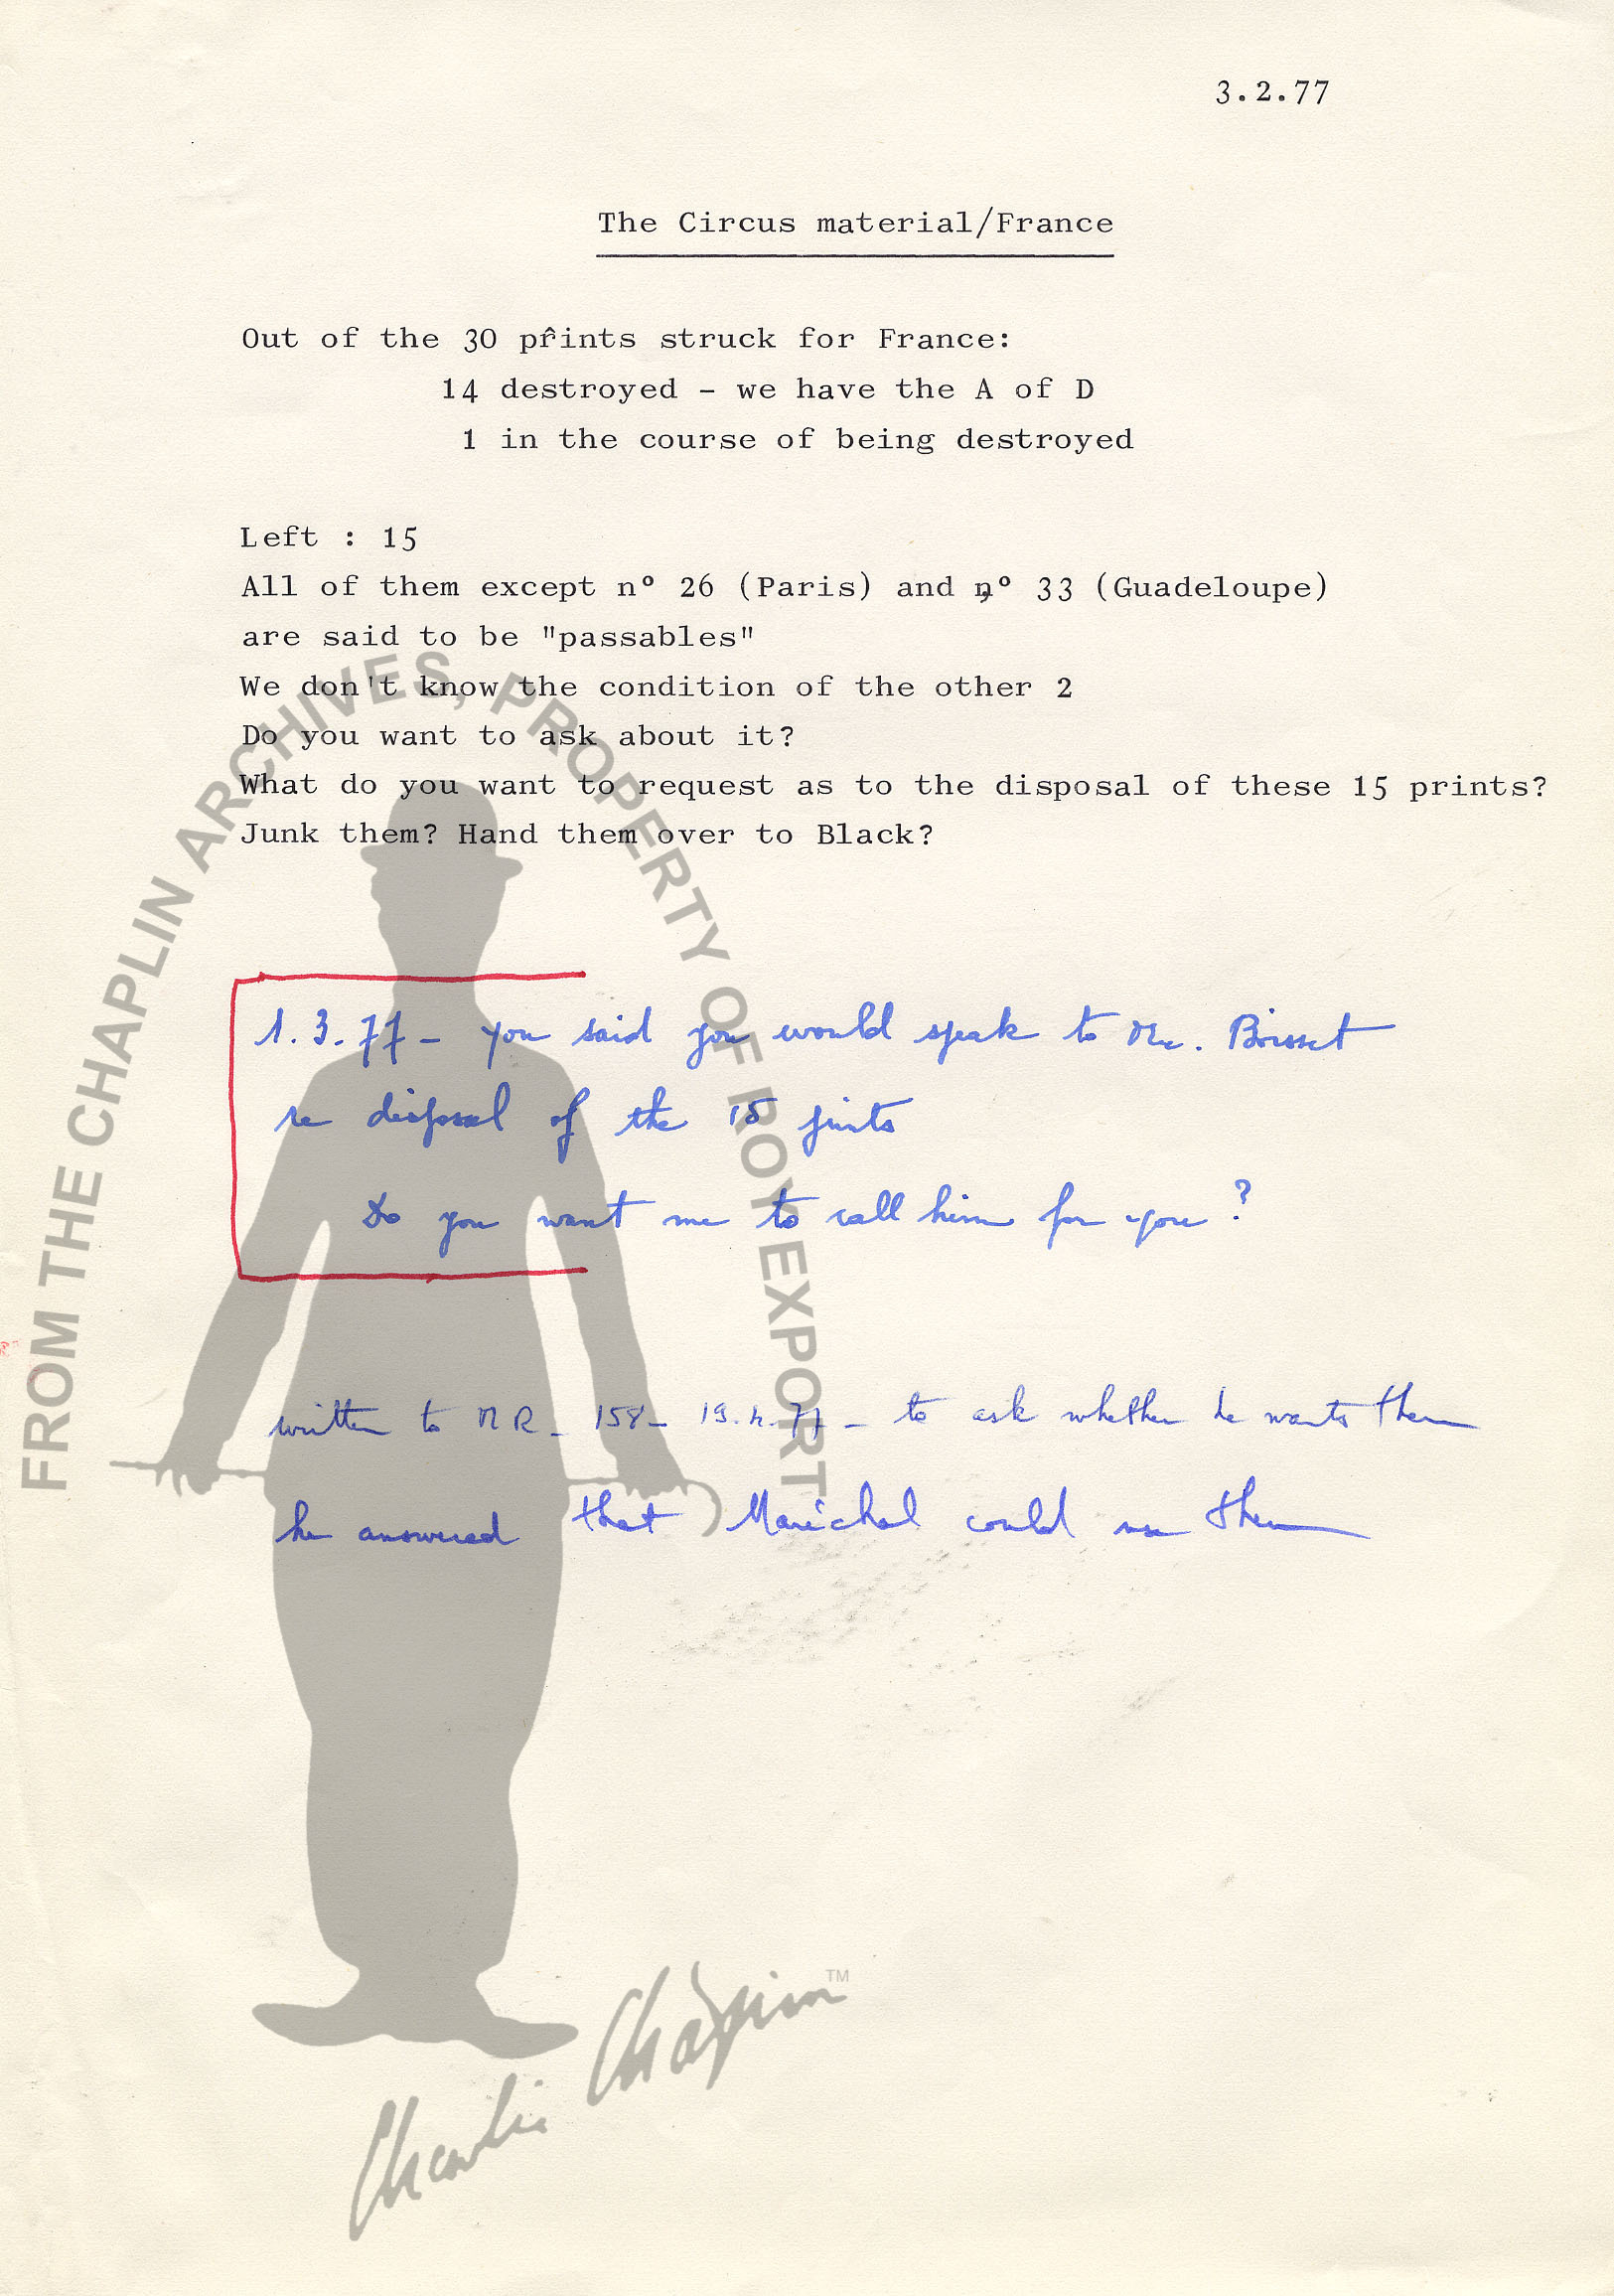 3.2.77
The Circus material/France
Out of the 30 prints struck for France:
14 destroyed - we have the A of D
1 in the course of being destroyed
Left : 15
All of them except nº 26 (Paris) and nº 33 (Guadeloupe)
are said to be "passables"
We don't know the condition of the other 2
Do you want to ask about it?
What do you want to request as to the disposal of these 15 prints?
Junk them? Hand them over to Black?
1.3.77 - you said you would speak to Mr. Boisset
re disposal of the 15 prints
Do you want me to call him for you ?
written to MR - 158 - 19.4.77 - to ask whether he wants them
he answered that Maréchal could use them
FROM THE CHAPLIN ARCHIVES, PROPERTY OF ROY EXPORT
Charlie Chaplin TM